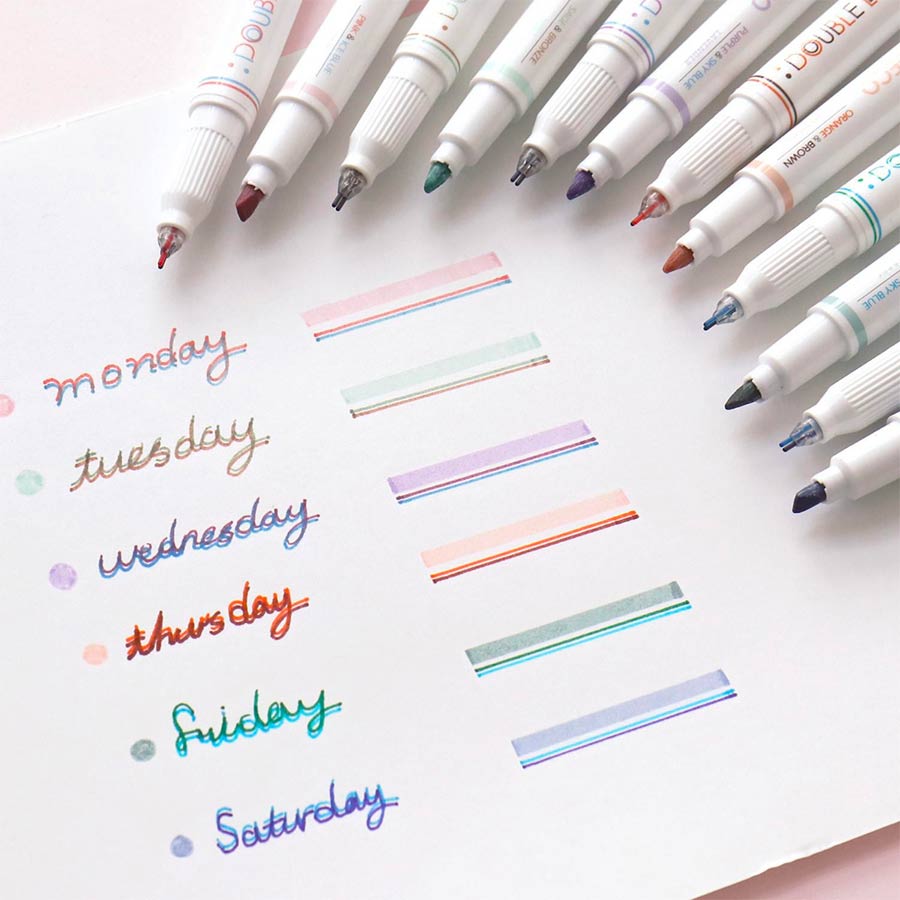 DOUBLE
PINK & ICE BLUE
SAGE & BRONZE
PURPLE & SKY BLUE
DOUBLE
ORANGE & BROWN
SKY BLUE
monday
tuesday
wednesday
thursday
friday
Saturday